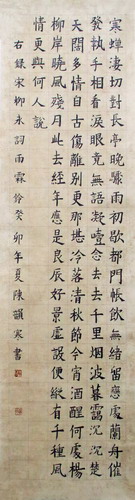 寒蟬淒切對長亭晚驟雨初歇都門帳飲無緒留戀處蘭舟催
發執手相看淚眼竟無語凝噎念去去千里烟波暮靄沉沉楚
天闊多情自古傷離別更那堪冷落清秋節今宵酒醒何處楊
柳岸曉風殘月此去經年應是良辰好景虛設便縱有千種風
情更與何人說
右錄宋柳永詞雨霖鈴癸卯年夏陳韻寒書